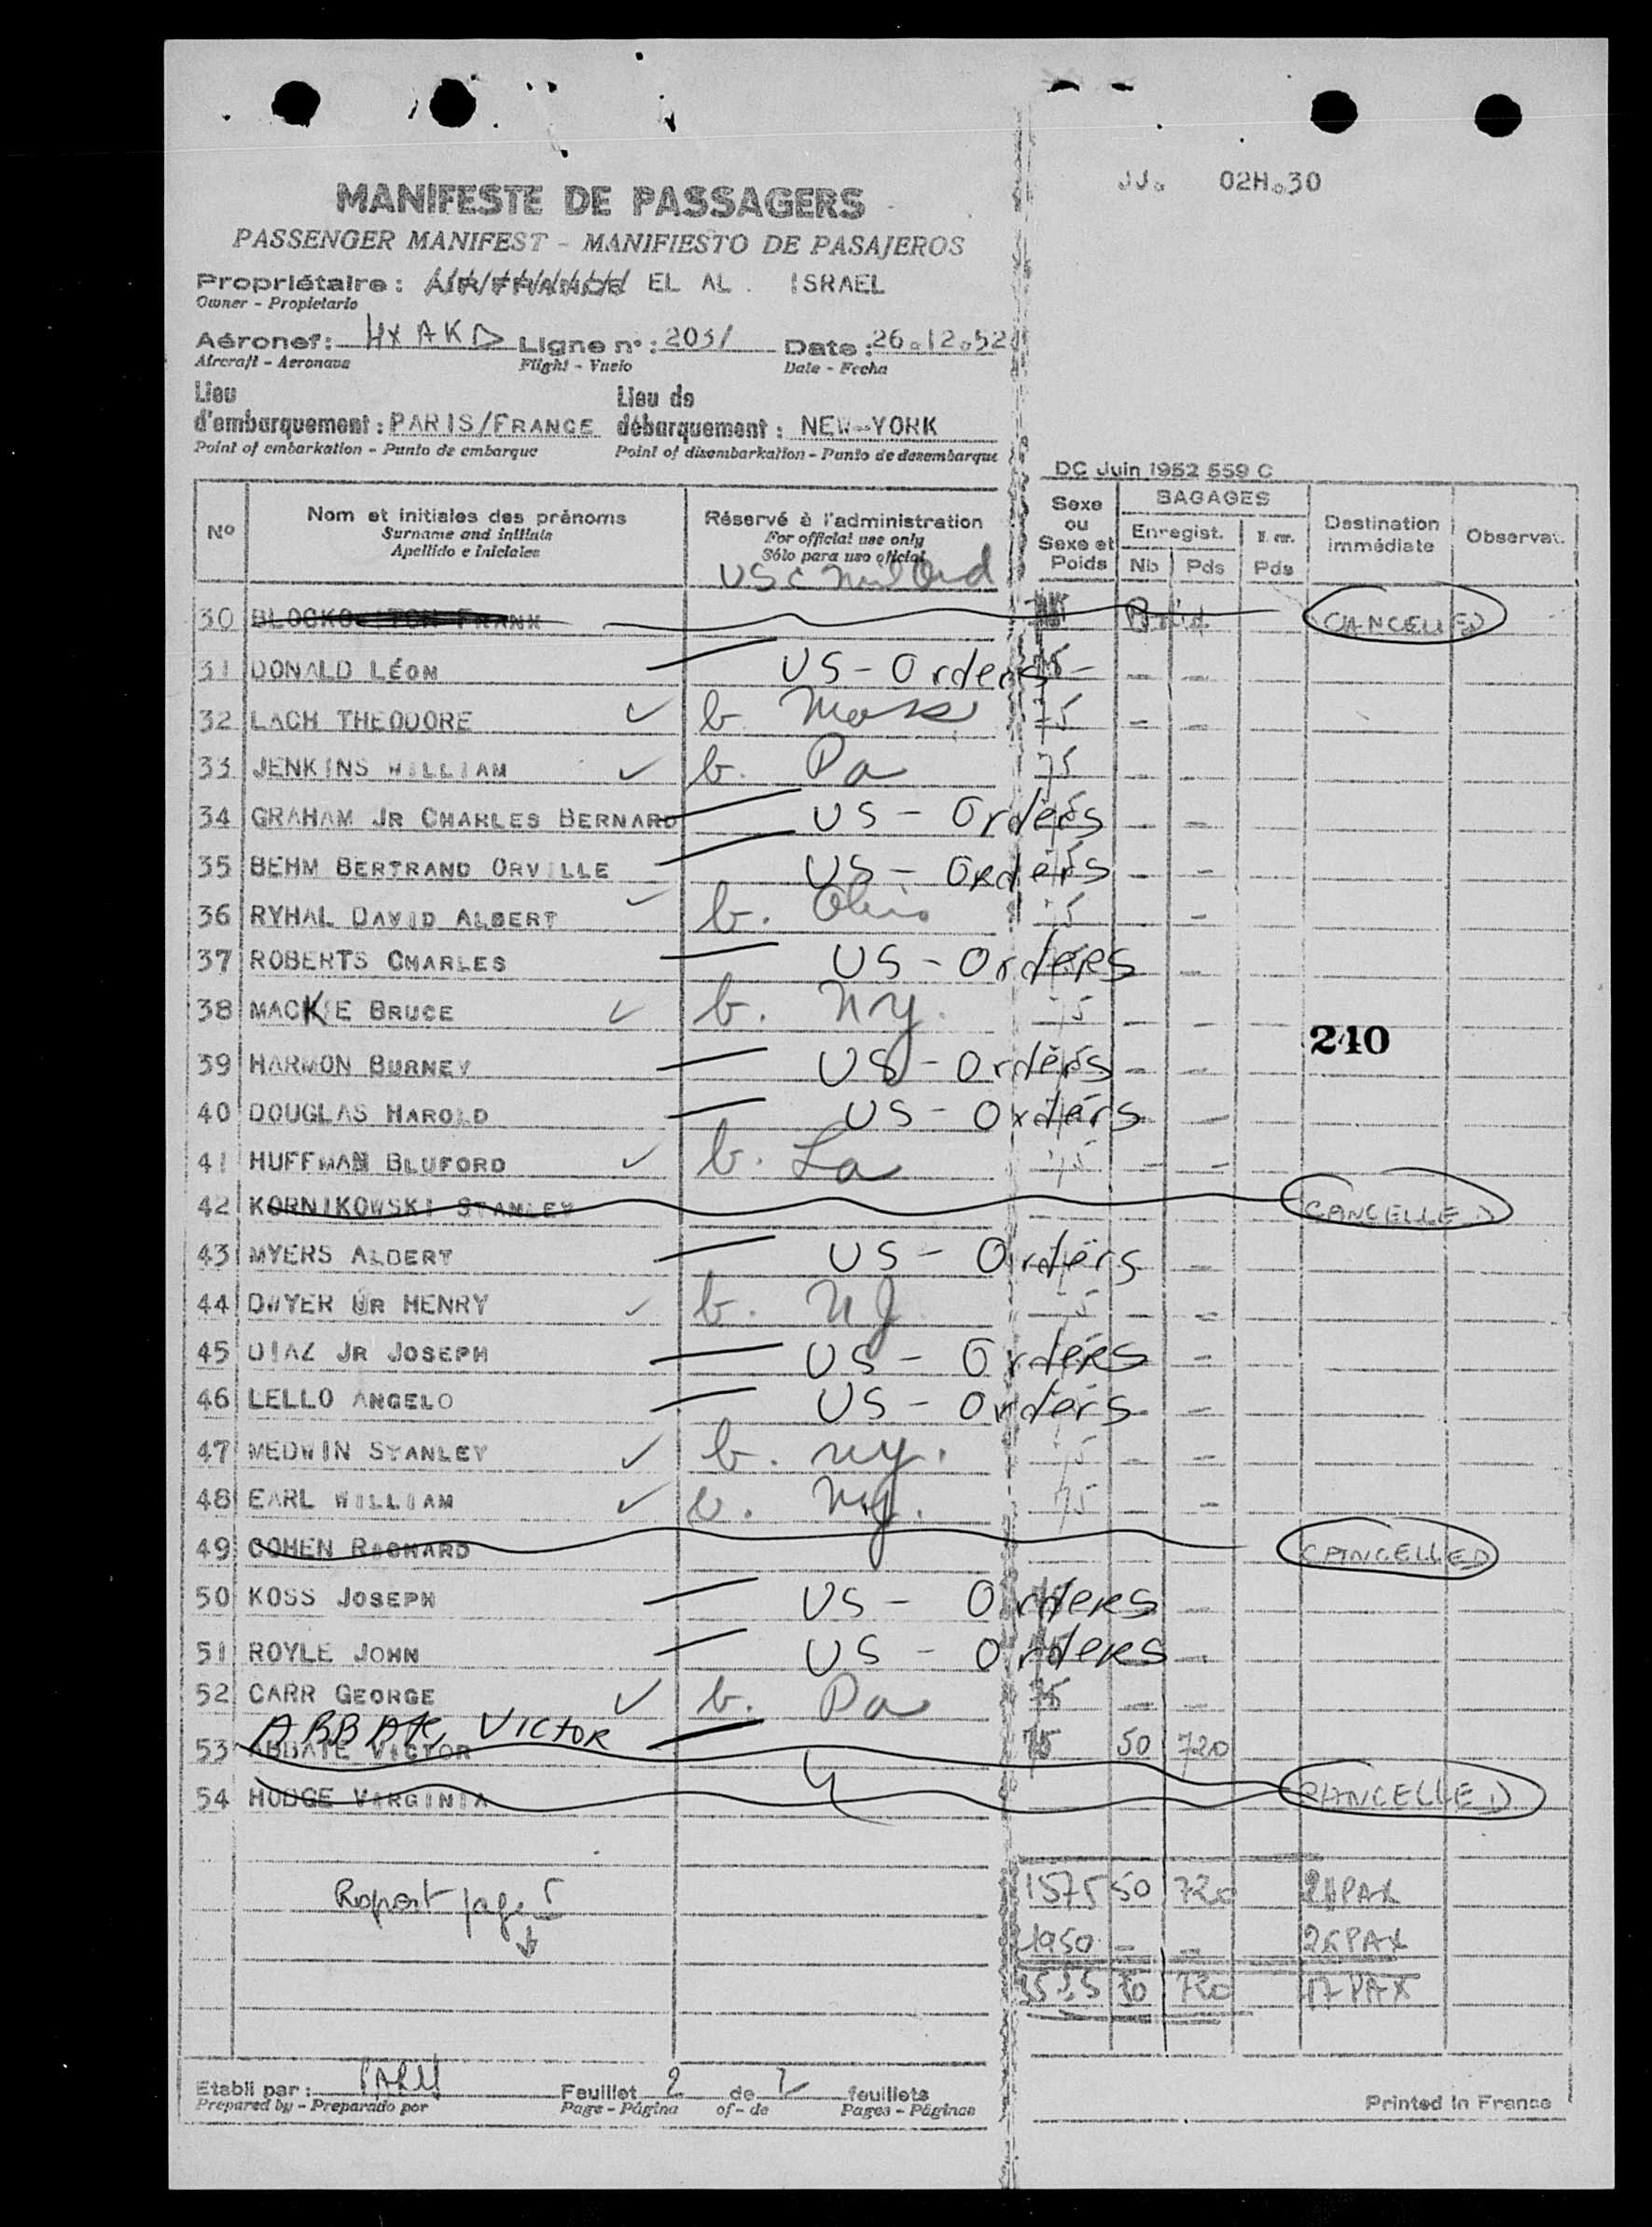 JJ. 02H.30
MANIFESTE DE PASSAGERS
PASSENGER MANIFEST - MANIFIESTO DE PASAJEROS
Propriétaire : AIR/FRANCE EL AL. ISRAEL
Owner - Propietario
Aéronef : 4X AKD Ligne n° : 203/ Date : 26.12.52
Aircraft - Aeronave Flight - Vuelo Date - Fecha
Lieu d'embarquement : PARIS/FRANCE Lieu de débarquement : NEW-YORK
Point of embarkation - Punto de embarque Point of disembarkation - Punto de desembarque
DC Juin 1952 559 C
N° Nom et initiales des prénoms Réservé à l'administration Sexe ou Sexe et Poids BAGAGES Destination immédiate Observat.
Surname and initials For official use only Enregist.
Apellido e Iniciales Sólo para uso oficial Nb Pds Pds
30 FRANK CANCELLED
31 DONALD LÉON US - Orders 75 - -
32 LACH THEODORE ✓ b. Mass 75 - -
33 JENKINS WILLIAM ✓ b. Pa 75
34 GRAHAM JR CHARLES BERNARD US - Orders - -
35 BEHM BERTRAND ORVILLE US - Orders - -
36 RYHAL DAVID ALBERT ✓ b. Ohio 75 -
37 ROBERTS CHARLES US - Orders -
38 MACKIE BRUCE ✓ b. NY. 75 - -
240
39 HARMON BURNEY US - Orders - -
40 DOUGLAS HAROLD US - Orders -
41 HUFFMAN BLUFORD ✓ b. La 75 - -
42 KORNIKOWSKI STANLEY CANCELLED
43 MYERS ALBERT US - Orders -
44 DWYER JR HENRY ✓ b. NJ 75 - -
45 DIAZ JR JOSEPH US - Orders -
46 LELLO ANGELO US - Orders -
47 MEDWIN STANLEY ✓ b. ny. 75 - -
48 EARL WILLIAM ✓ b. NY. 75 -
49 COHEN RICHARD CANCELLED
50 KOSS JOSEPH US - Orders -
51 ROYLE JOHN US - Orders -
52 CARR GEORGE ✓ b. Pa 75 - -
ABBATE, VICTOR
53 ABBATE VICTOR 75 50 720
54 HODGE VIRGINIA CANCELLED
1575 50 720 21 PAX
Report page 1950 - - 26 PAX
3525 50 720 47 PAX
Etabli par : Feuillet 2 de 2 feuillets
Prepared by - Preparado por Page - Página of - de Pages - Páginas
Printed in France